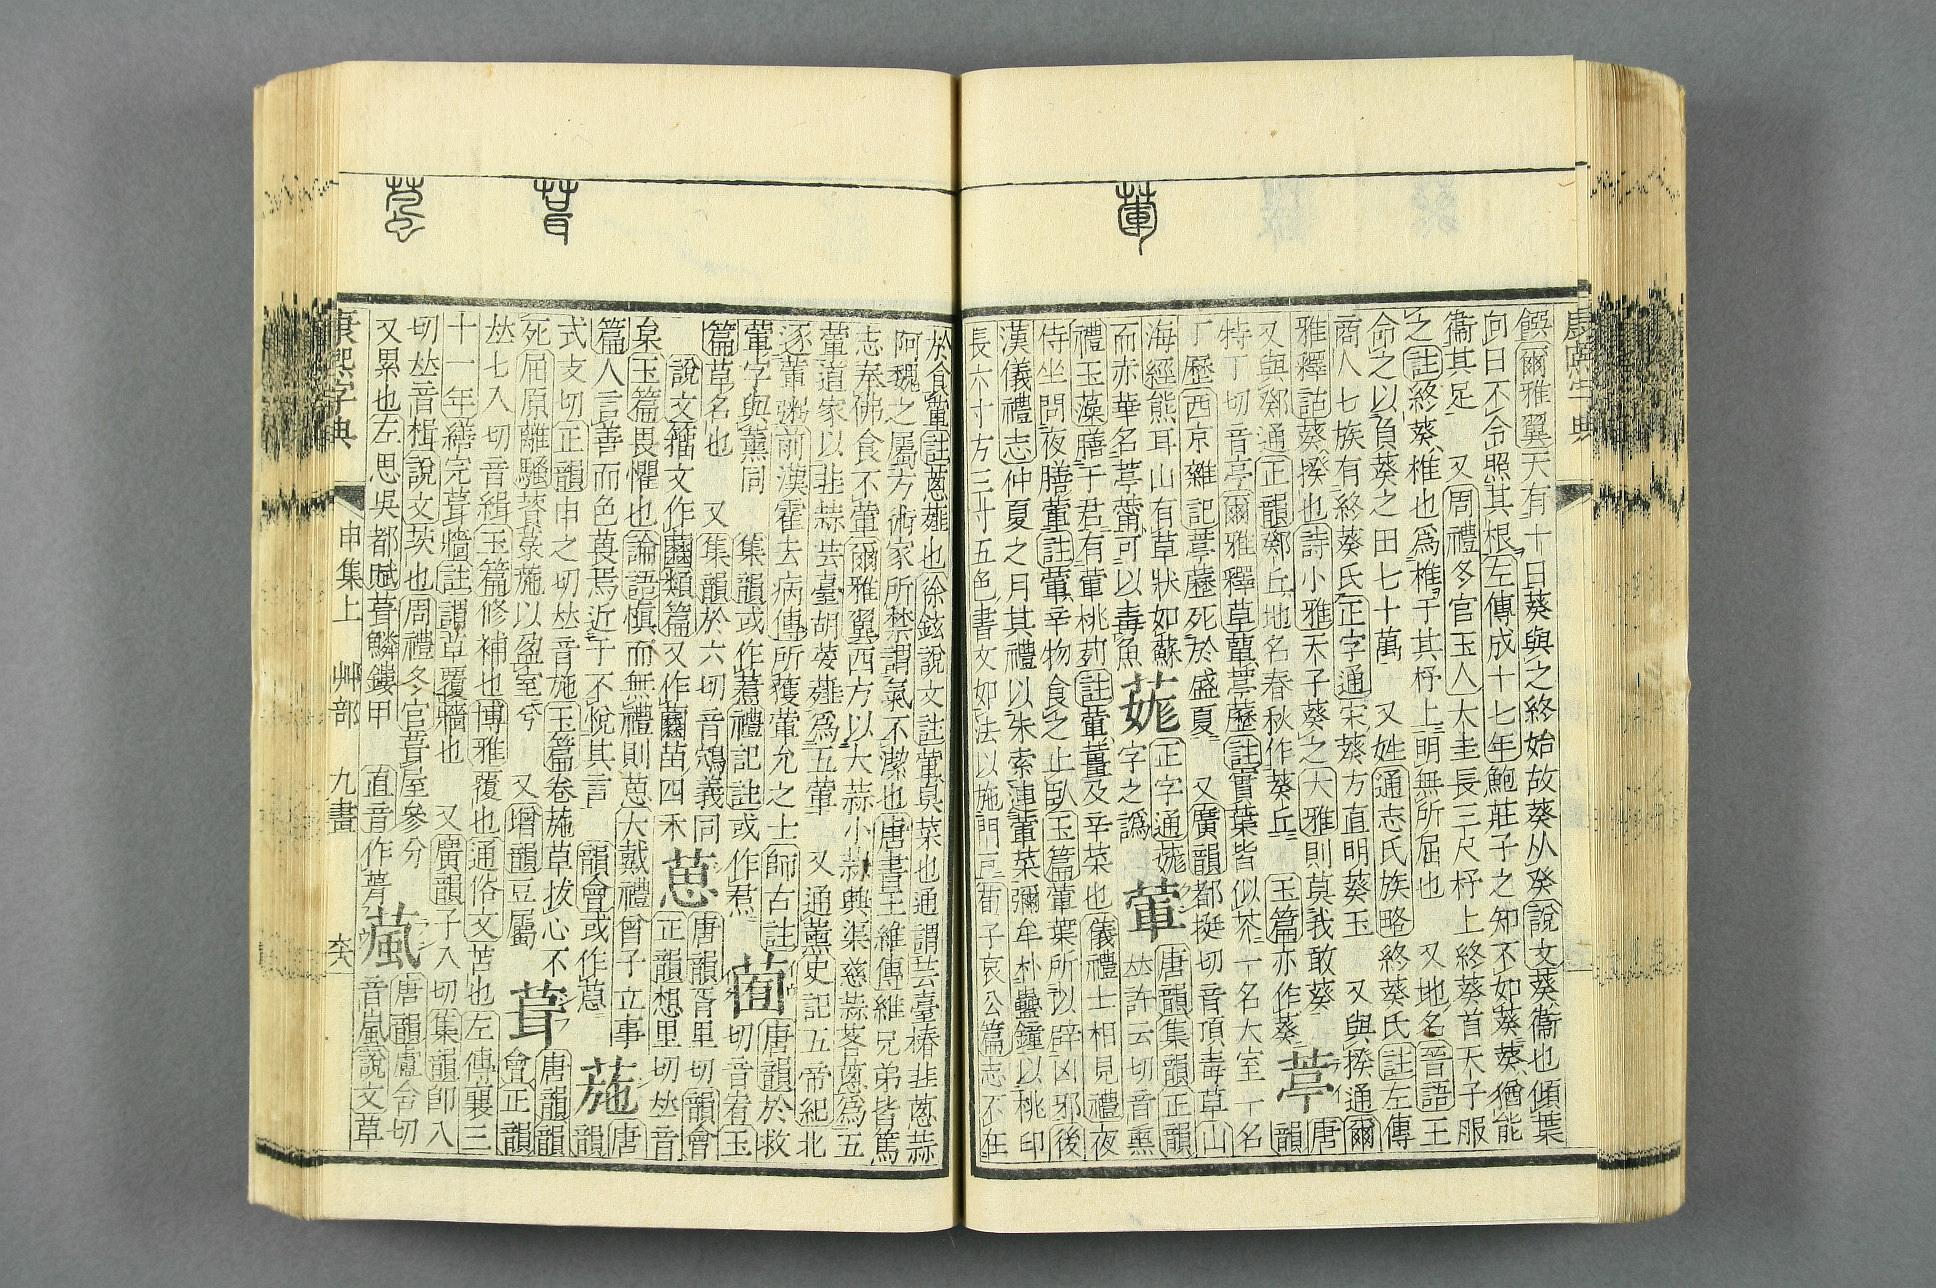 饌爾雅翼天有十日葵與之終始故葵从癸說文葵衞也傾葉
向日不令照其根左傳成十七年鮑莊子之知不如葵葵猶能
衞其足 又周禮冬官玉人大圭長三尺杼上終葵首天子服
之註終葵椎也爲椎于其杼上明無所屈也 又地名晉語王
命之以負葵之田七十萬 又姓通志氏族略終葵氏註左傳
商人七族有終葵氏正字通宋葵方直明葵玉 又與揆通爾
雅釋詁葵揆也詩小雅天子葵之大雅則莫我敢葵
又與鄈通正韻鄈丘地名春秋作葵丘 玉篇亦作葵 葶 唐
特丁切音亭爾雅釋草蕇葶藶註實葉皆似芥一名大室一名 韻
丁歷西京雜記葶藶死於盛夏 又廣韻都挺切音頂毒草山
海經熊耳山有草狀如蘇 正字通䓲
而赤華名葶薴可以毒魚 䓲 字之譌 葷 唐韻集韻正韻
𠀤許云切音熏
禮玉藻膳于君有葷桃茢註葷薑及辛菜也儀禮士相見禮夜
侍坐問夜膳葷註葷辛物食之止臥玉篇葷葉所以辟凶邪後
漢儀禮志仲夏之月其禮以朱索連葷菜彌牟朴蠱鐘以桃印
長六寸方三寸五色書文如法以施門戸荀子哀公篇志不在
於食葷註蔥薤也徐鉉說文註葷臭菜也通謂芸臺椿韭蔥蒜
阿魏之屬方術家所禁謂氣不潔也唐書王維傳維兄弟皆篤
志奉佛食不葷爾雅翼西方以大蒜小蒜興渠慈蒜茖蔥爲五
葷道家以韭蒜芸臺胡荽薤爲五葷 又通薰史記五帝紀北
逐葷粥前漢霍去病傳所獲葷允之士師古註
葷字與薰同 集韻或作焄禮記註或作煮 䓴 唐韻於救
切音宥玉
篇草名也 又集韻於六切音鴪義同 葸 唐韻胥里切韻會
正韻想里切𠀤音
枲玉篇畏懼也論語愼而無禮則葸大戴禮曾子立事
篇人言善而色葸焉近于不悅其言 韻會或作諰 葹 唐韻
式支切正韻申之切𠀤音施玉篇卷葹草拔心不
死屈原離騷薋菉葹以盈室兮 又增韻豆屬 葺 唐韻
會正韻
𠀤七入切音緝玉篇修補也博雅覆也通俗文苫也左傳襄三
十一年繕完葺牆註謂草覆牆也 又廣韻子入切集韻卽入
切𠀤音楫說文茨也周禮冬官葺屋參分
又累也左思吳都賦葺鱗鏤甲 直音作𦯷 葻 唐韻盧含切
音嵐說文草
康熙字典 申集上 艸部 九畫
康熙字典